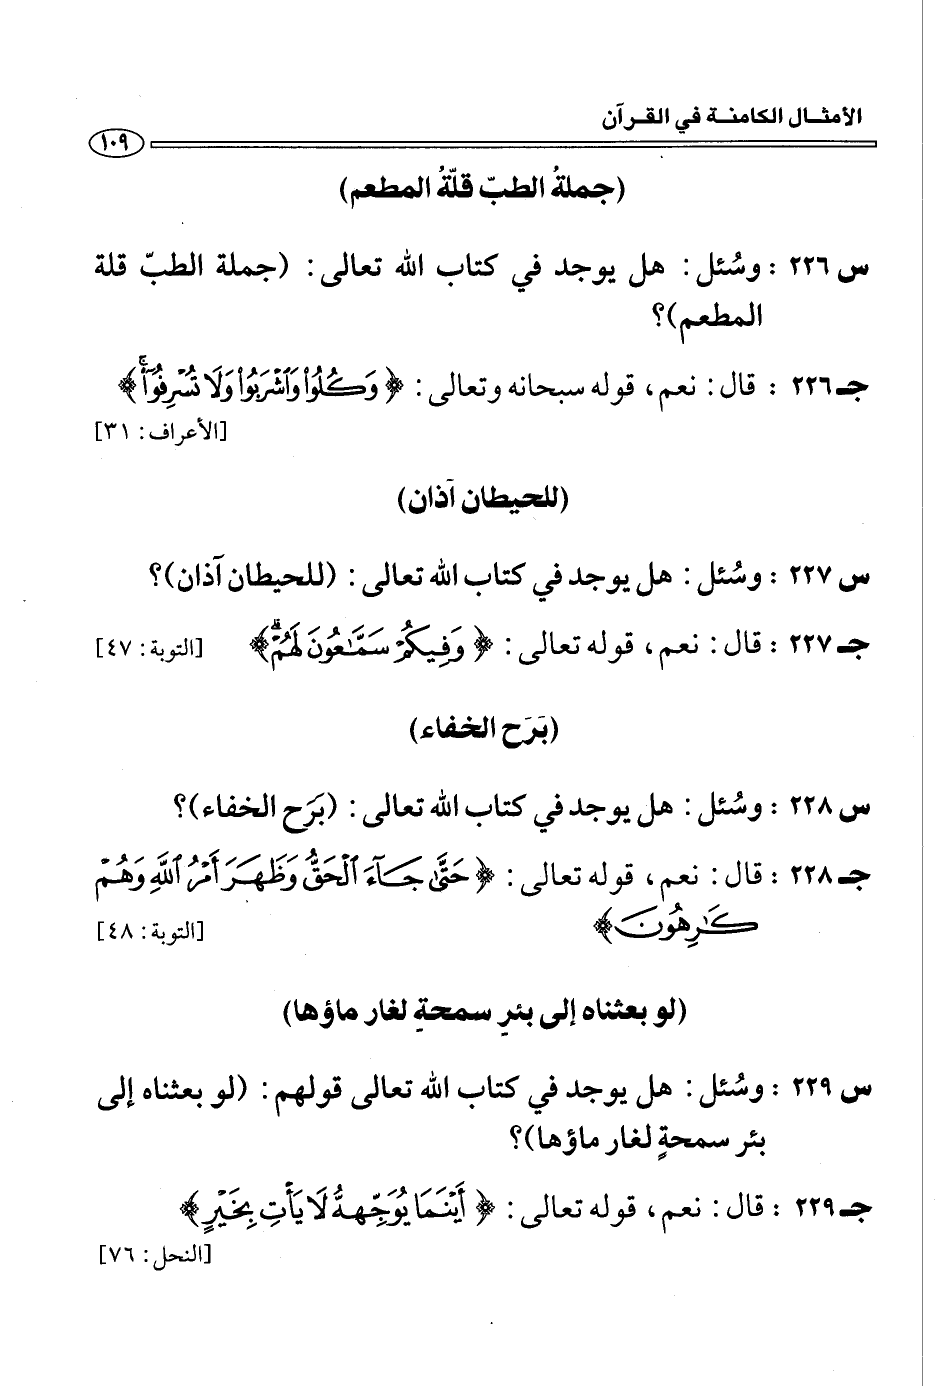 الأمثـال الكامنـة في القـرآن
١٠٩
(جملةُ الطبّ قلّةُ المطعم)
س ٢٢٦ : وسُئل: هل يوجد في كتاب الله تعالى: (جملة الطبّ قلة
المطعم)؟
جـ ٢٢٦ : قال: نعم، قوله سبحانه وتعالى: ﴿ وَكُلُوا۟ وَٱشْرَبُوا۟ وَلَا تُسْرِفُوٓا۟ۚ ﴾
[الأعراف: ٣١]
(للحيطان آذان)
س ٢٢٧ : وسُئل: هل يوجد في كتاب الله تعالى: (للحيطان آذان)؟
جـ ٢٢٧ : قال: نعم، قوله تعالى: ﴿ وَفِيكُمْ سَمَّـٰعُونَ لَهُمْۗ ﴾ [التوبة: ٤٧]
(بَرَح الخفاء)
س ٢٢٨ : وسُئل: هل يوجد في كتاب الله تعالى: (بَرَح الخفاء)؟
جـ ٢٢٨ : قال: نعم، قوله تعالى: ﴿ حَتَّىٰ جَآءَ ٱلْحَقُّ وَظَهَرَ أَمْرُ ٱللَّهِ وَهُمْ
كَـٰرِهُونَ ﴾ [التوبة: ٤٨]
(لو بعثناه إلى بئرِ سمحةٍ لغار ماؤها)
س ٢٢٩ : وسُئل: هل يوجد في كتاب الله تعالى قولهم: (لو بعثناه إلى
بئر سمحةٍ لغار ماؤها)؟
جـ ٢٢٩ : قال: نعم، قوله تعالى: ﴿ أَيْنَمَا يُوَجِّههُّ لَا يَأْتِ بِخَيْرٍ ﴾
[النحل: ٧٦]